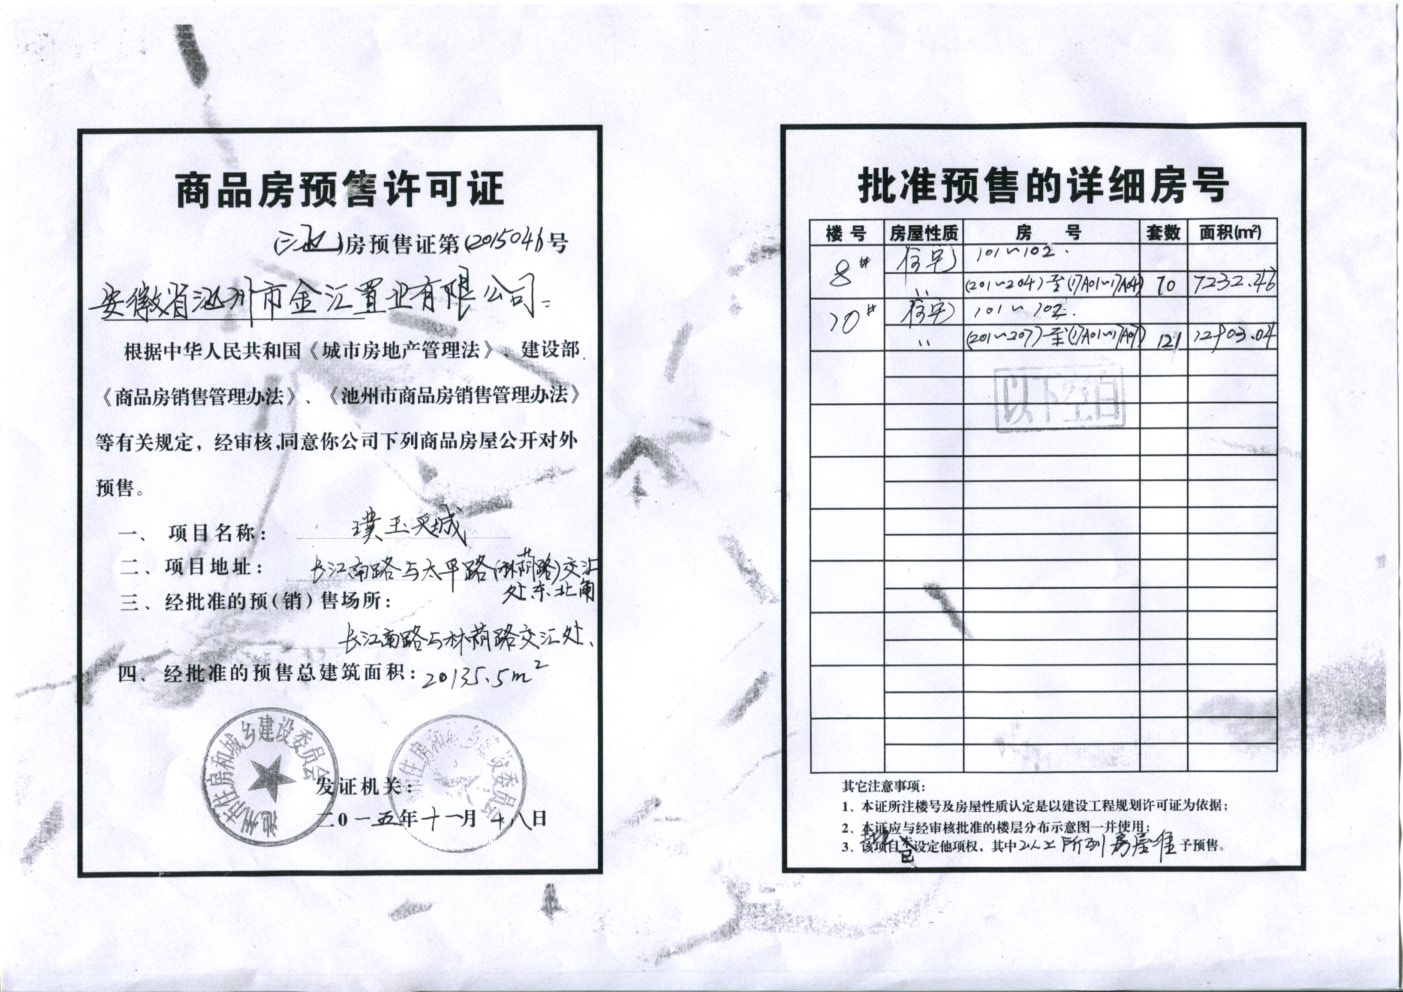 商品房预售许可证
(池)房预售证第(2015046)号
安徽省池州市金汇置业有限公司：
根据中华人民共和国《城市房地产管理法》、建设部
《商品房销售管理办法》、《池州市商品房销售管理办法》
等有关规定，经审核，同意你公司下列商品房屋公开对外
预售。
一、项目名称： 璞玉天城
二、项目地址： 长江南路与太平路(林荫路)交汇
处东北角
三、经批准的预(销)售场所：
长江南路与林荫路交汇处、
四、经批准的预售总建筑面积：20135.5m²
池州市住房和城乡建设委员会
住房和城乡建设委员会
发证机关：
二0一五年十一月十八日
批准预售的详细房号
楼号 房屋性质 房号 套数 面积(m²)
8# 住宅 101~102.
〃 (201~204)至(17A01~17A04) 70 7232.46
10# 住宅 101~102.
〃 (201~207)至(17A01~17A07) 121 12903.04
以下空白
其它注意事项：
1、本证所注楼号及房屋性质认定是以建设工程规划许可证为依据；
2、本证应与经审核批准的楼层分布示意图一并使用；
3、该项目已设定他项权，其中以上所列房屋准予预售。